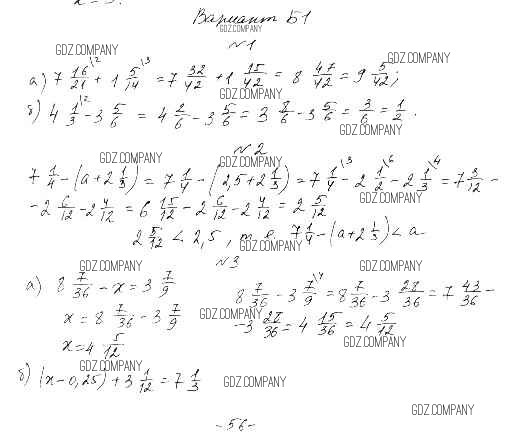 Вариант Б1
GDZ.COMPANY
№1
GDZ.COMPANY
GDZ.COMPANY
а) 7 16/21 \2 + 1 5/14 \3 = 7 32/42 + 1 15/42 = 8 47/42 = 9 5/42;
GDZ.COMPANY
б) 4 1/3 \2 - 3 5/6 = 4 2/6 - 3 5/6 = 3 8/6 - 3 5/6 = 3/6 = 1/2.
GDZ.COMPANY
№2
GDZ.COMPANY
GDZ.COMPANY
7 1/4 - (a + 2 1/3) = 7 1/4 - (2,5 + 2 1/3) = 7 1/4 \3 - 2 1/2 \6 - 2 1/3 \4 = 7 3/12 -
GDZ.COMPANY
- 2 6/12 - 2 4/12 = 6 15/12 - 2 6/12 - 2 4/12 = 2 5/12
2 5/12 < 2,5, т. е. 7 1/4 - (a + 2 1/3) < a
GDZ.COMPANY
№3
GDZ.COMPANY
а) 8 7/36 - x = 3 7/9
8 7/36 - 3 7/9 \4 = 8 7/36 - 3 28/36 = 7 43/36 -
x = 8 7/36 - 3 7/9
GDZ.COMPANY
- 3 28/36 = 4 15/36 = 4 5/12
x = 4 5/12
GDZ.COMPANY
GDZ.COMPANY
б) (x - 0,25) + 3 1/12 = 7 1/3
GDZ.COMPANY
GDZ.COMPANY
-56-